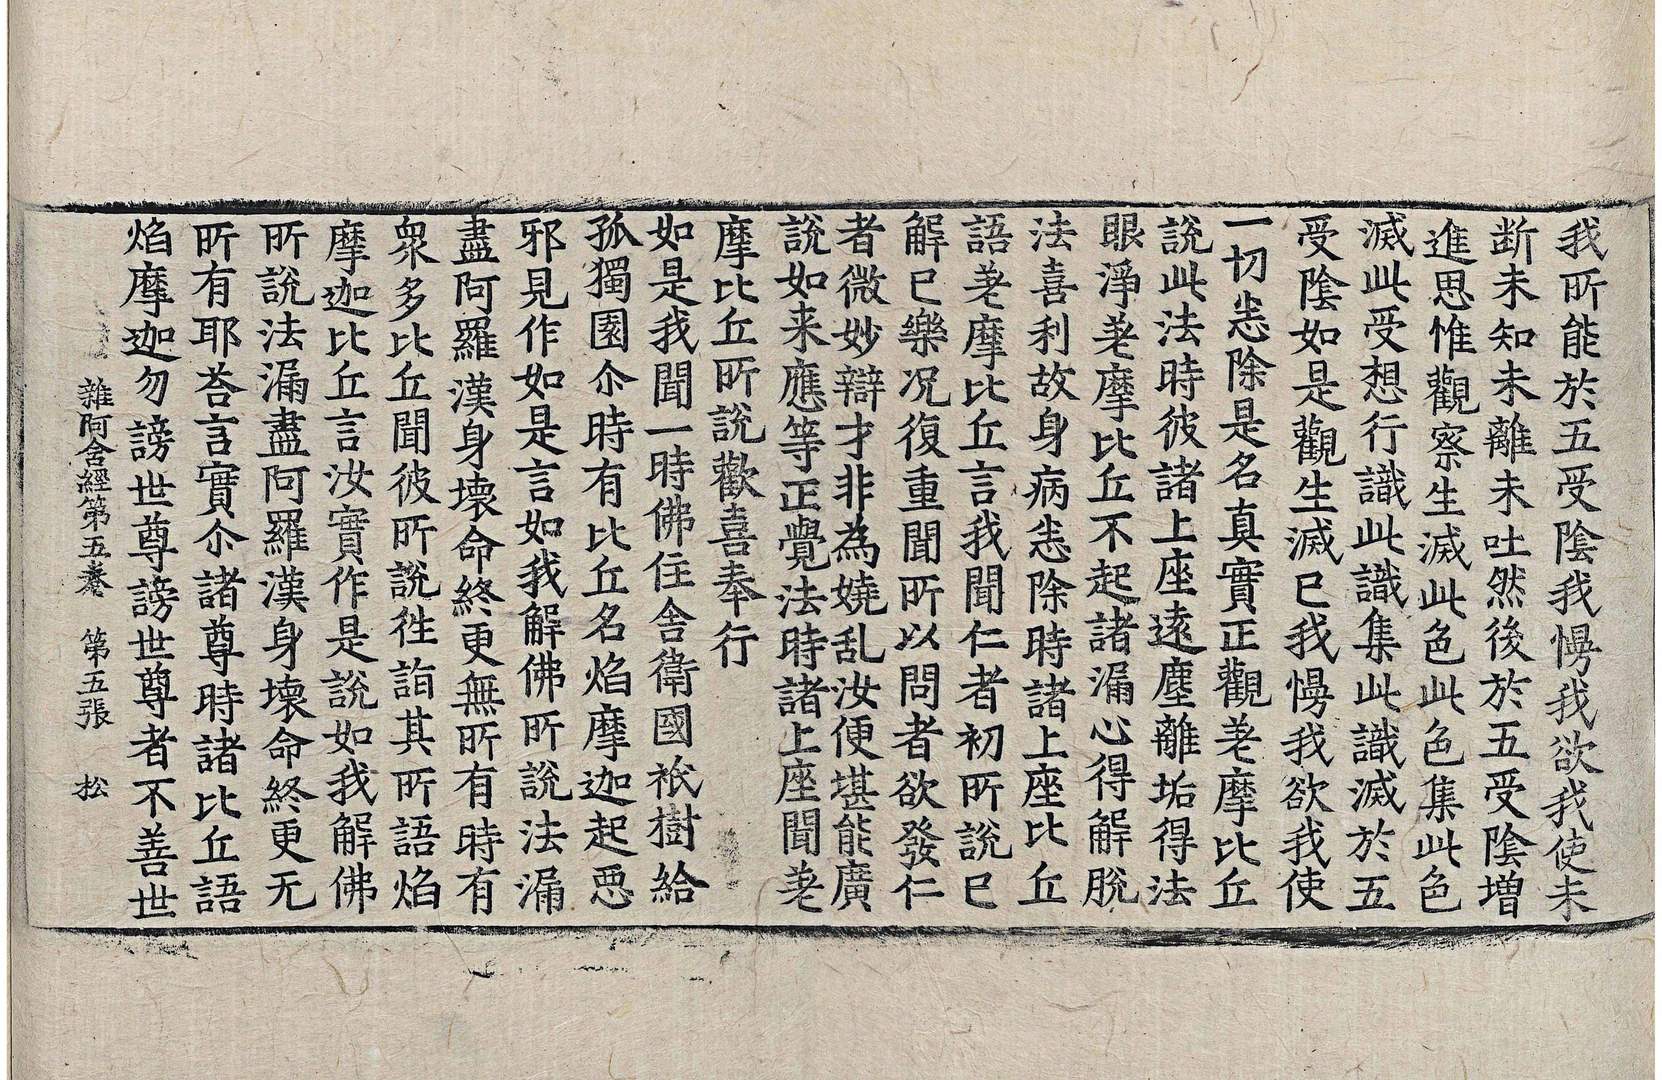 我所能於五受陰我慢我欲我使未
断未知未離未吐然後於五受陰增
進思惟觀察生滅此色此色集此色
滅此受想行識此識集此識滅於五
受陰如是觀生滅已我慢我欲我使
一切悉除是名真實正觀差摩比丘
說此法時彼諸上座遠塵離垢得法
眼淨差摩比丘不起諸漏心得解脫
法喜利故身病悉除時諸上座比丘
語差摩比丘言我聞仁者初所說已
解已樂况復重聞所以問者欲發仁
者微妙辯才非為嬈乱汝便堪能廣
說如来應等正覺法時諸上座聞差
摩比丘所說歡喜奉行
如是我聞一時佛住舍衛國祇樹給
孤獨園尒時有比丘名焰摩迦起惡
邪見作如是言如我解佛所說法漏
盡阿羅漢身壞命終更無所有時有
衆多比丘聞彼所說徃詣其所語焰
摩迦比丘言汝實作是說如我解佛
所說法漏盡阿羅漢身壞命終更无
所有耶荅言實尒諸尊時諸比丘語
焰摩迦勿謗世尊謗世尊者不善世
雜阿含經第五卷 第五張 松